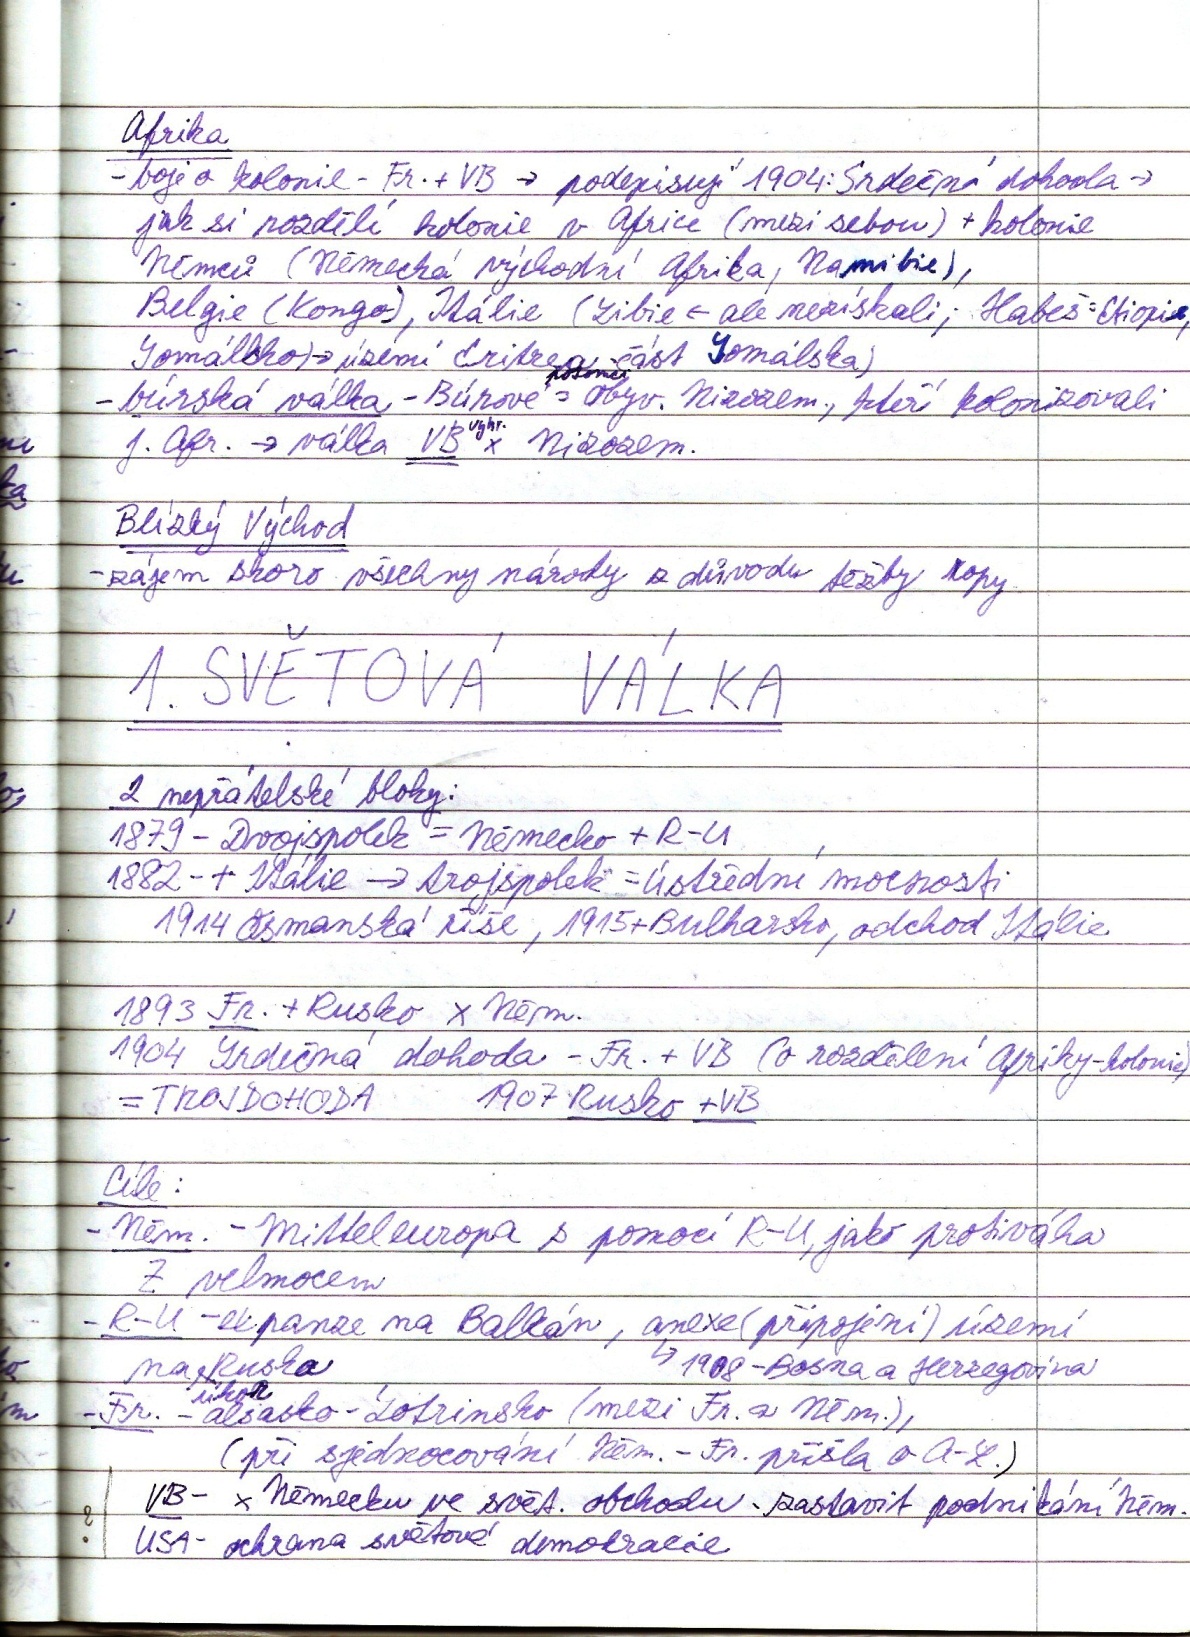 Afrika
- boje o kolonie - Fr. + VB → podepisují 1904: Srdečná dohoda →
jak si rozdělí kolonie v Africe (mezi sebou) + kolonie
Němců (Německá východní Afrika, Namibie),
Belgie (Kongo), Itálie (Libie ← ale nezískali; Habeš = Etiopie,
Somálsko) → území Eritrea část Somálska)
- búrská válka - Búrové = potomci obyv. Nizozem., kteří kolonizovali
j. Afr. → válka VB vyhr. x Nizozem.
Blízký Východ
- zájem skoro všechny národy z důvodu těžby ropy
1. SVĚTOVÁ VÁLKA
2 nepřátelské bloky:
1879 - Dvojspolek = Německo + R-U
1882 - + Itálie → trojspolek = ústřední mocnosti
1914 Osmanská říše, 1915 + Bulharsko, odchod Itálie
1893 Fr. + Rusko x Něm.
1904 Srdečná dohoda - Fr. + VB (o rozdělení Afriky - kolonie)
= TROJDOHODA 1907 Rusko + VB
Cíle:
- Něm. - Mitteleuropa s pomocí R-U, jako protiváha
Z velmocem
- R-U - expanze na Balkán, anexe (připojení) území
na úkor Ruska ↳ 1908 - Bosna a Herzegovina
- Fr. - Alsasko - Lotrinsko (mezi Fr. a Něm.),
(při sjednocování Něm. - Fr. přišla o A-L.)
? VB - x Německu ve svět. obchodu - zastavit podnikání Něm.
USA - ochrana světové demokracie